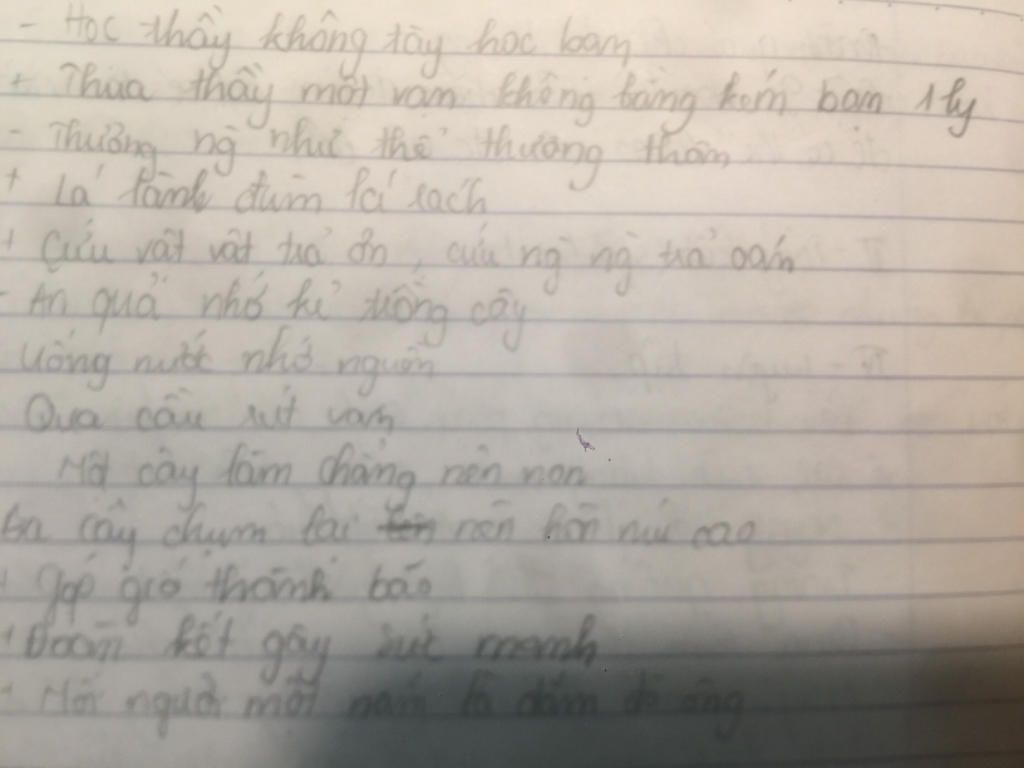 - Học thầy không tày học bạn
+ Thua thầy một vạn không bằng kém bạn 1 ly
- Thương ng như thể thương thân
+ Lá lành đùm lá rách
+ Cứu vật vật trả ơn, cứu ng ng trả oán
- Ăn quả nhớ kẻ trồng cây
Uống nước nhớ nguồn
Qua cầu rút ván
Một cây làm chẳng nên non
Ba cây chụm lại nên hòn núi cao
+ Góp gió thành bão
+ Đoàn kết gây sức mạnh
+ Mỗi người một nắm là đầy